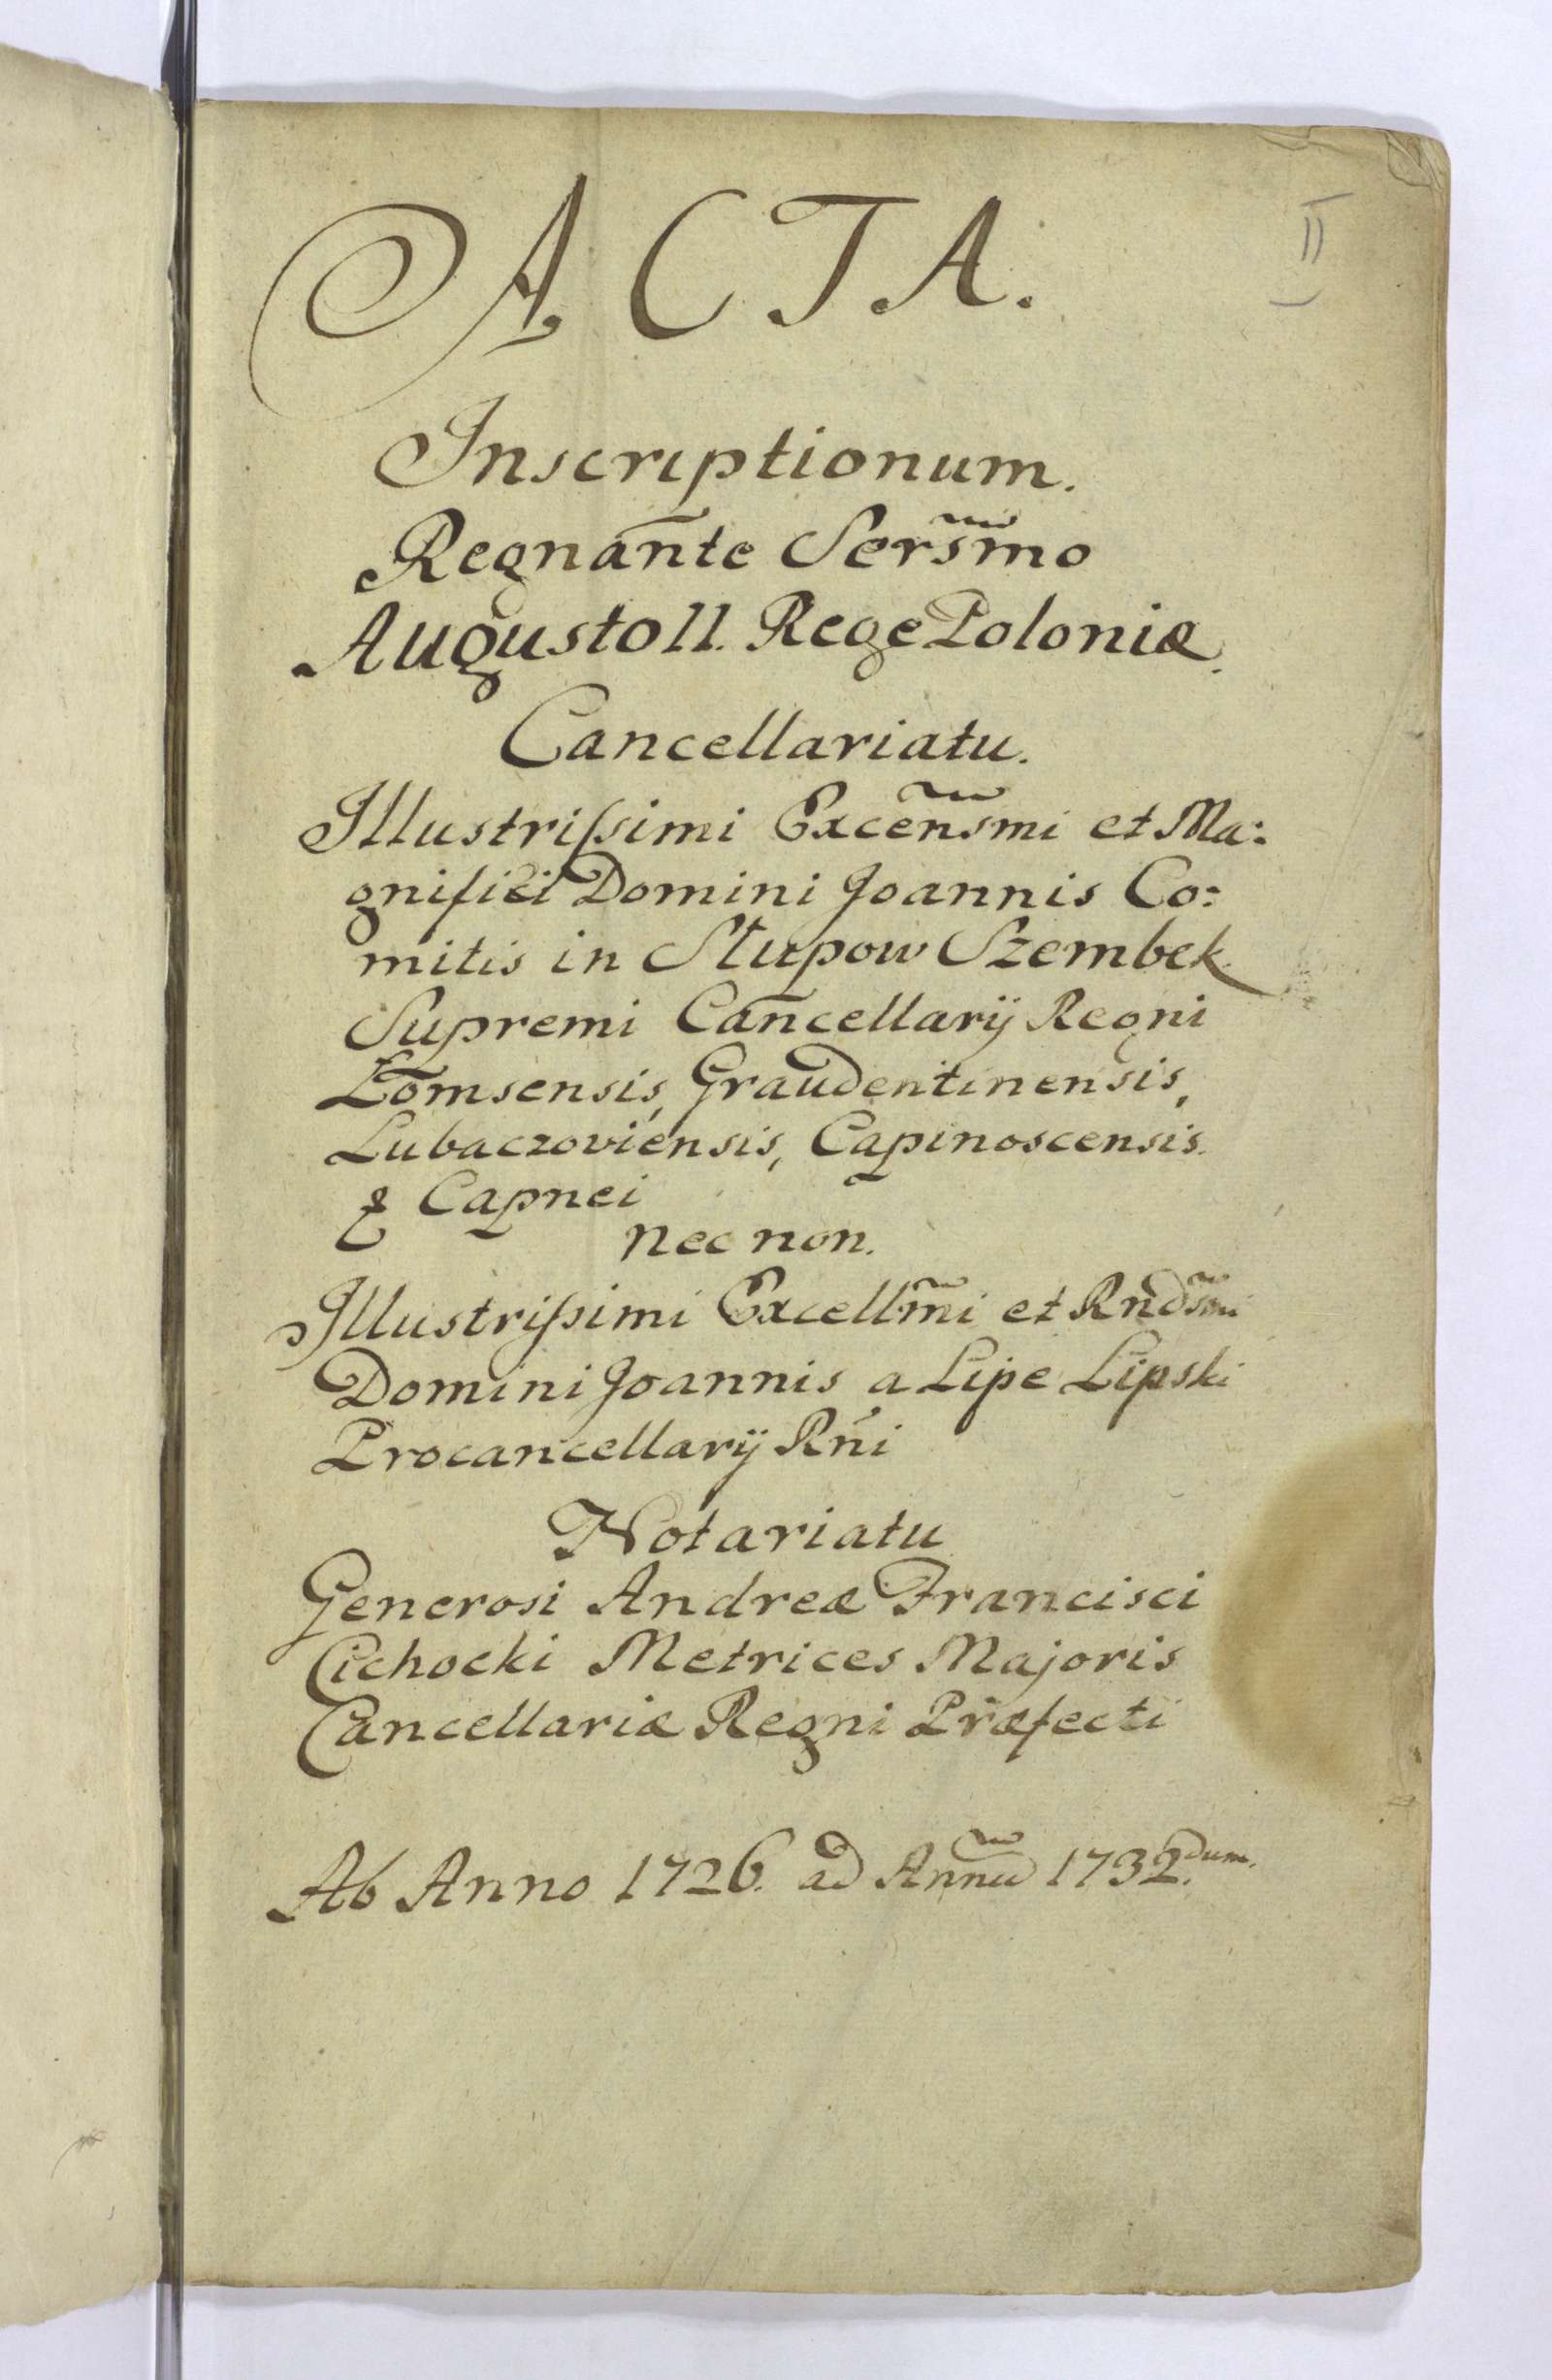 II
ACTA.
Inscriptionum.
Regnañte Sers̃mo
Augusto II. Rege Poloniæ.
Cancellariatu.
Illustrissimi Exceñsmi et Ma:
gnifici Domini Joannis Co:
mitis in Słupow Szembek
Supremi Cancellarij Regni
Łomsensis, Graudentinensis,
Lubaczoviensis, Capinoscensis.
& Capnei
nec non.
Illustrissimi Excellm̃i et Rnds̃mi
Domini Joannis a Lipe Lipski
Procancellarij Rñi
Notariatu
Generosi Andreæ Francisci
Cichocki Metrices Majoris
Cancellariæ Regni Præfecti
Ab Anno 1726. ad Annũ 1732.dum.